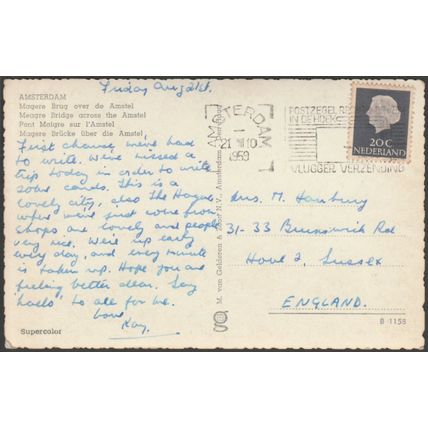 Friday Aug 21st.
AMSTERDAM
Magere Brug over de Amstel
Meagre Bridge across the Amstel
Pont Maigre sur l'Amstel
Magere Brücke über die Amstel
First chance we've had
to write. We've missed a
trip today in order to write
some cards. This is a
lovely city, also The Hague
where we've just come from
shops are lovely and people
very nice. We're up early
every day, and every minute
is taken up. Hope you are
feeling better dear. Say
hello to all for me.
Love
Kay.
Supercolor
M. van Gelderen & Zoon N.V., Amsterdam
AMSTERDAM
21 VIII 10
1959
POSTZEGEL RECHTS
IN DE HOEK
VLUGGER VERZENDING
20 C
NEDERLAND
Mrs. M. Hanbury
31-33 Brunswick Rd
Hove 2, Sussex
ENGLAND.
B 1158